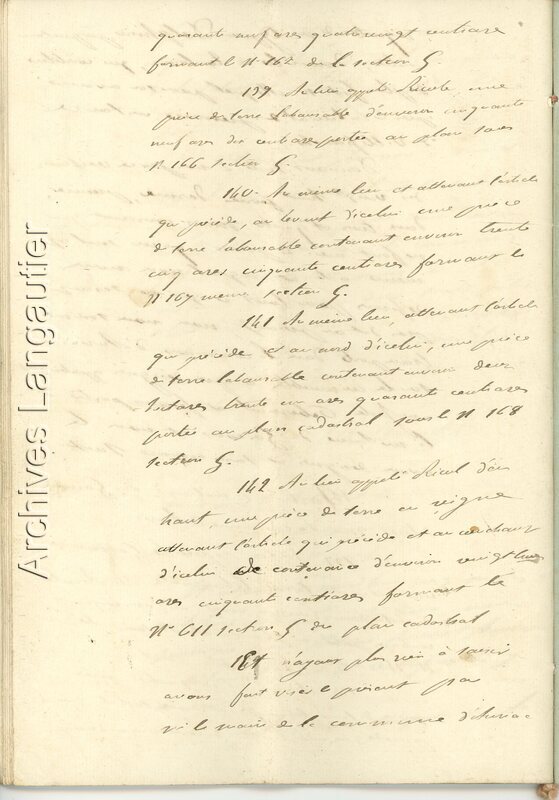 quarante neuf ares quatre vingt centiares
formant le N° 162 de la section G.
139 Au lieu appelé Ricole, une
pièce de terre labourable d'environ cinquante
neuf ares dix centiares portée au plan sous
N° 166 section G.
140. Au même lieu et attenant l'article
qui précède, au levant d'icelui une pièce
de terre labourable contenant environ trente
cinq ares cinquante centiares formant le
N° 167 même section G.
141 Au même lieu, attenant l'article
qui précède et au nord d'icelui, une pièce
de terre labourable contenant environ deux
hectares trente un ares quarante centiares
portée au plan cadastral sous le N° 168
section G.
142 Au lieu appelé Ricol d'en
haut, une pièce de terre en
attenant l'article qui précède et au couchant
d'icelui de contenance d'environ vingt
ares cinquante centiares formant le
N° 611 section G du plan cadastral
Et n'ayant plus rien à saisir
avons fait viser le présent par
le maire de la commune
Archives Langautier